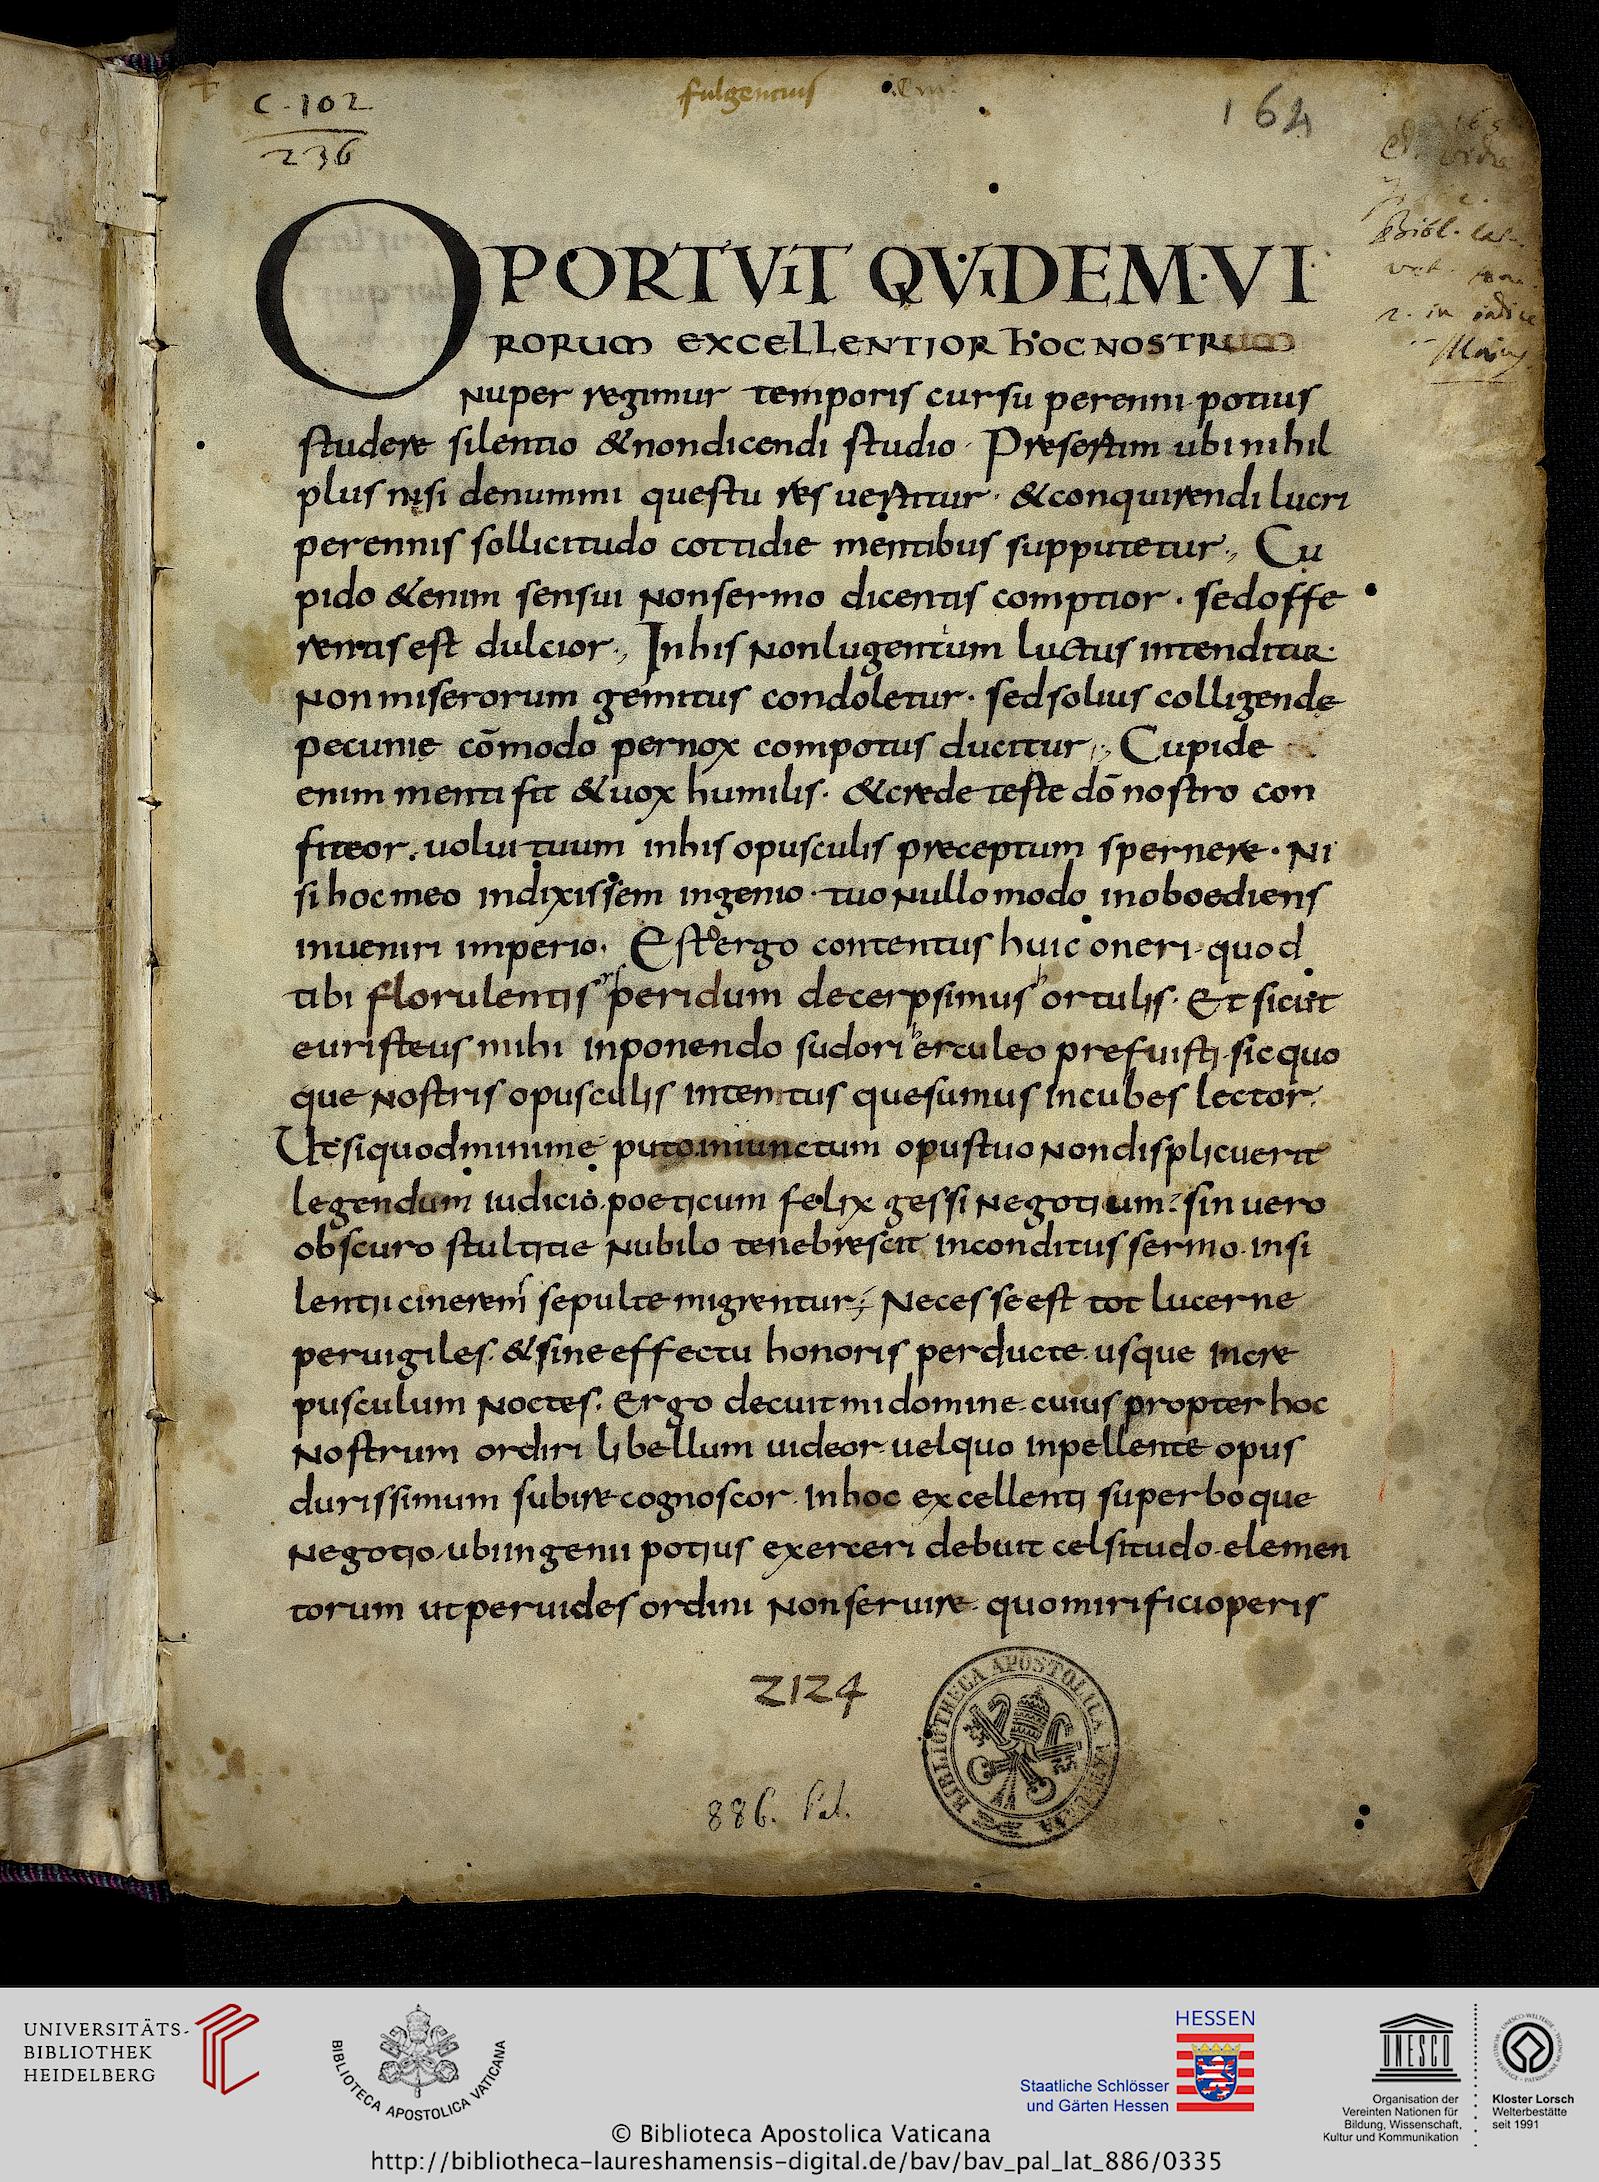 C. 102
236
fulgencius
164
OPORTVIT QVIDEM·VI
RORUM EXCELLENTIOR hOC NOSTRUM
Nuper regimur temporis cursu perenni potius
studere silentio &nondicendi studio · Presertim ubi nihil
plus nisi denummi questu res uertitur · &conquirendi lucri
perennis sollicitudo cottidie mentibus supputetur ; Cu
pido &enim sensui Nonsermo dicentis comptior · sedoffe
rentis est dulcior ; Inhis Nonlugentium luctus intenditur ·
Nonmiserorum gemitus condoletur · sedsolius colligende
pecunie cōmodo pernox compotus ducitur ; Cupide
enim menti fit &uox humilis · &crede teste dō nostro con
fiteor . uolui tuum inhis opusculis preceptum spernere · Ni
si hoc meo indixissem ingenio · tuo Nullo modo inoboediens
inueniri imperio · Esto ergo contentus huic oneri · quod
tibi florulentis speridum decerpsimus hortulis · Et sicut
euristeus mihi inponendo sudori herculeo prefuisti · sic quo
que Nostris opusculis intentus quesumus incubes lector ·
Ut siquodminime puto iniunctum opustuo Nondisplicuerit
legendum iudicio · poeticum felix gessi Negotium : sin uero
obscuro stultitie Nubilo tenebrescit inconditus sermo · insi
lentii cinerem sepulte migrentur ; Necesse est tot lucerne
peruigiles · &sine effectu honoris perducte usque incre
pusculum Noctes · Ergo decuit mi domine · cuius propter hoc
Nostrum ordiri libellum uideor · uelquo inpellente opus
durissimum subire cognoscor · Inhoc excellenti superboque
Negotio · ubi ingenii potius exerceri debuit celsitudo · elemen
torum ut peruides ordini Nonseruire · quo mirificioperis
2124
886. Pal.
BIBLIOTHECA APOSTOLICA VATICANA
UNIVERSITÄTS-
BIBLIOTHEK
HEIDELBERG
BIBLIOTECA APOSTOLICA VATICANA
HESSEN
Staatliche Schlösser
und Gärten Hessen
UNESCO
Organisation der
Vereinten Nationen für
Bildung, Wissenschaft,
Kultur und Kommunikation
Kloster Lorsch
Welterbestätte
seit 1991
© Biblioteca Apostolica Vaticana
http://bibliotheca-laureshamensis-digital.de/bav/bav_pal_lat_886/0335